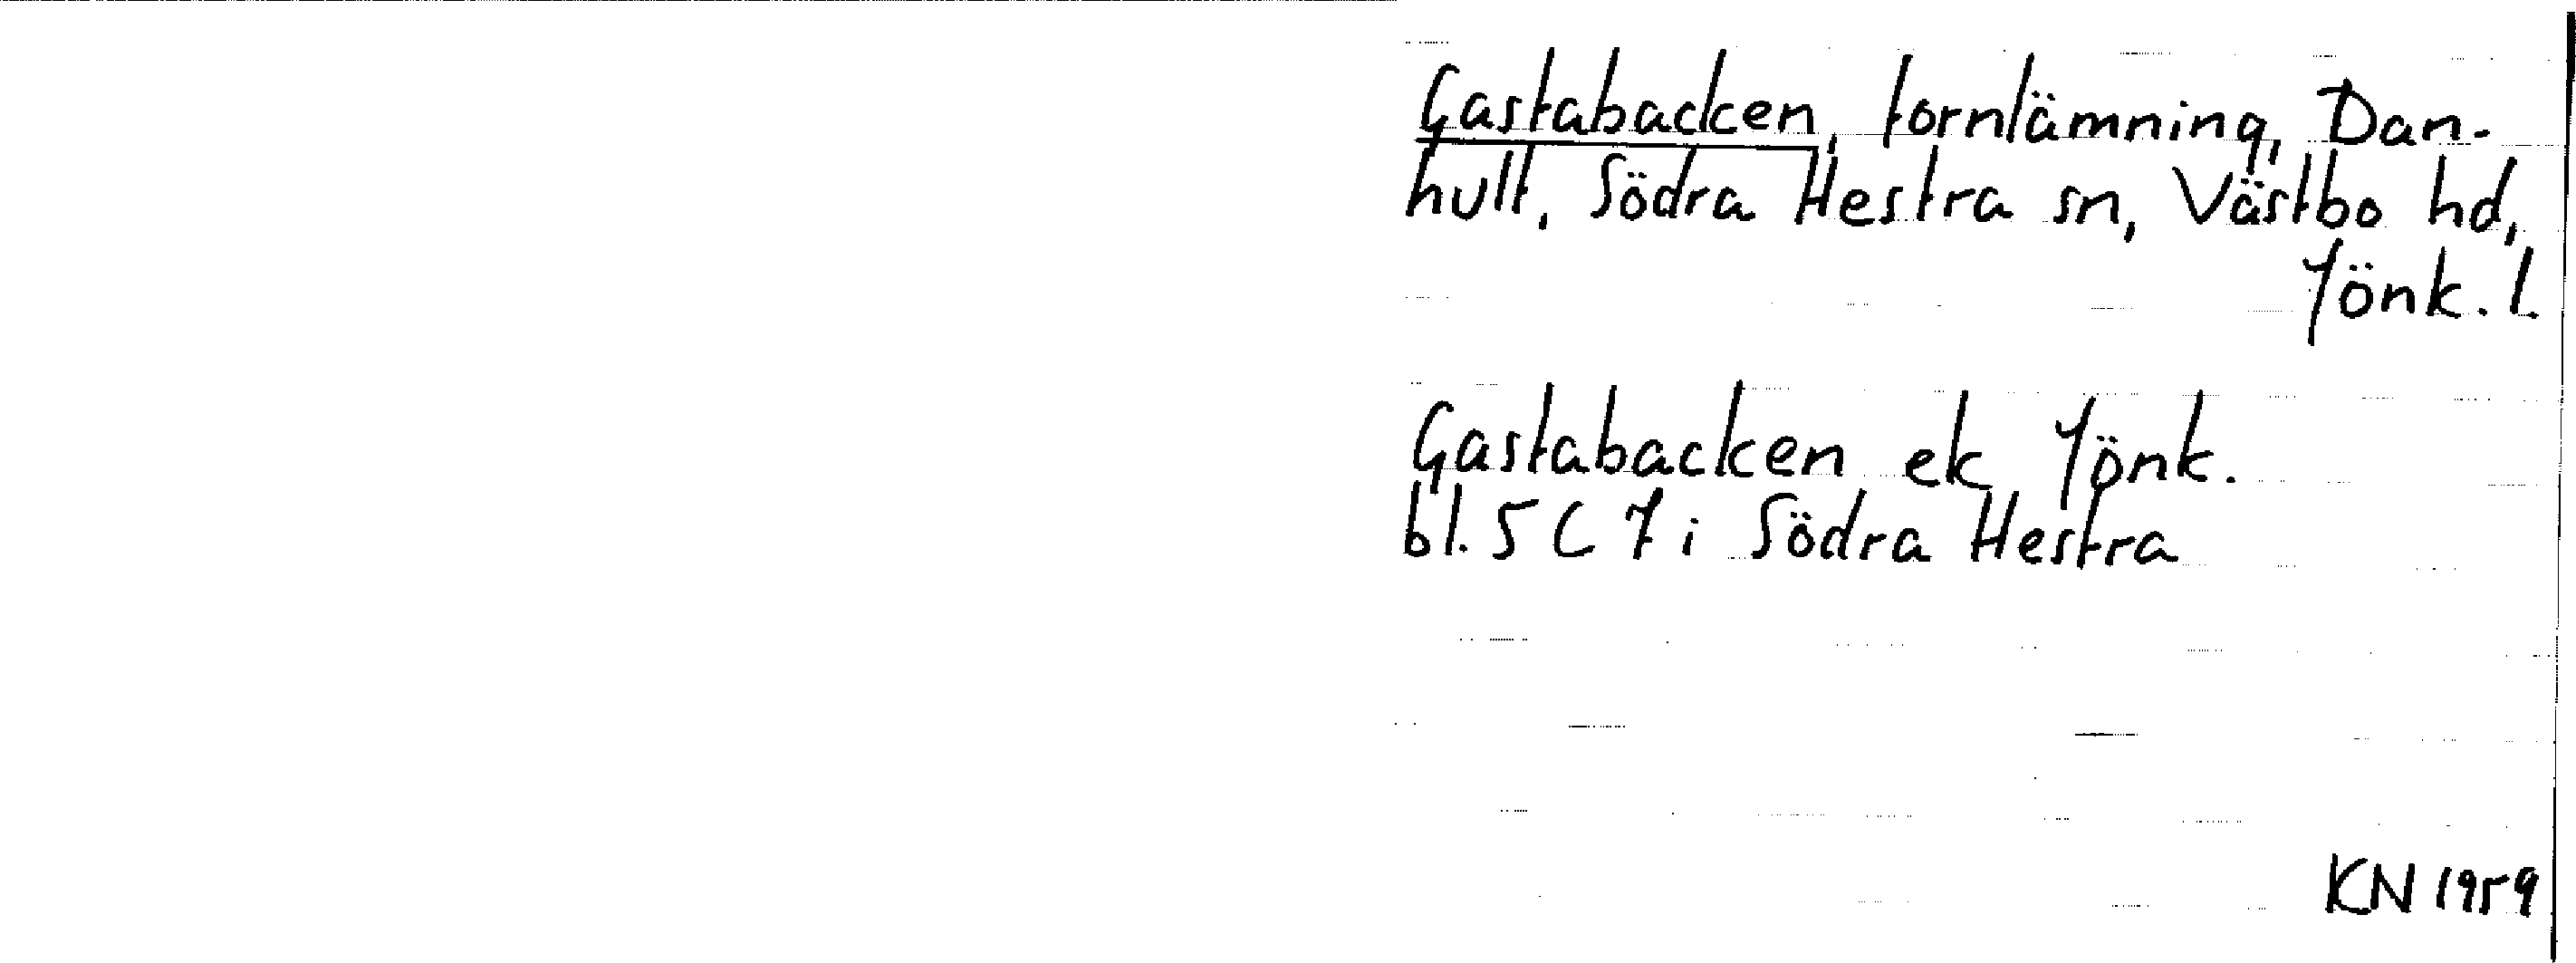 Gastabacken, fornlämning, Dan-
hult, Södra Hestra sn, Västbo hd,
Jönk. l.
Gastabacken ek Jönk.
bl. 5 C 7 i Södra Hestra
KN 1959